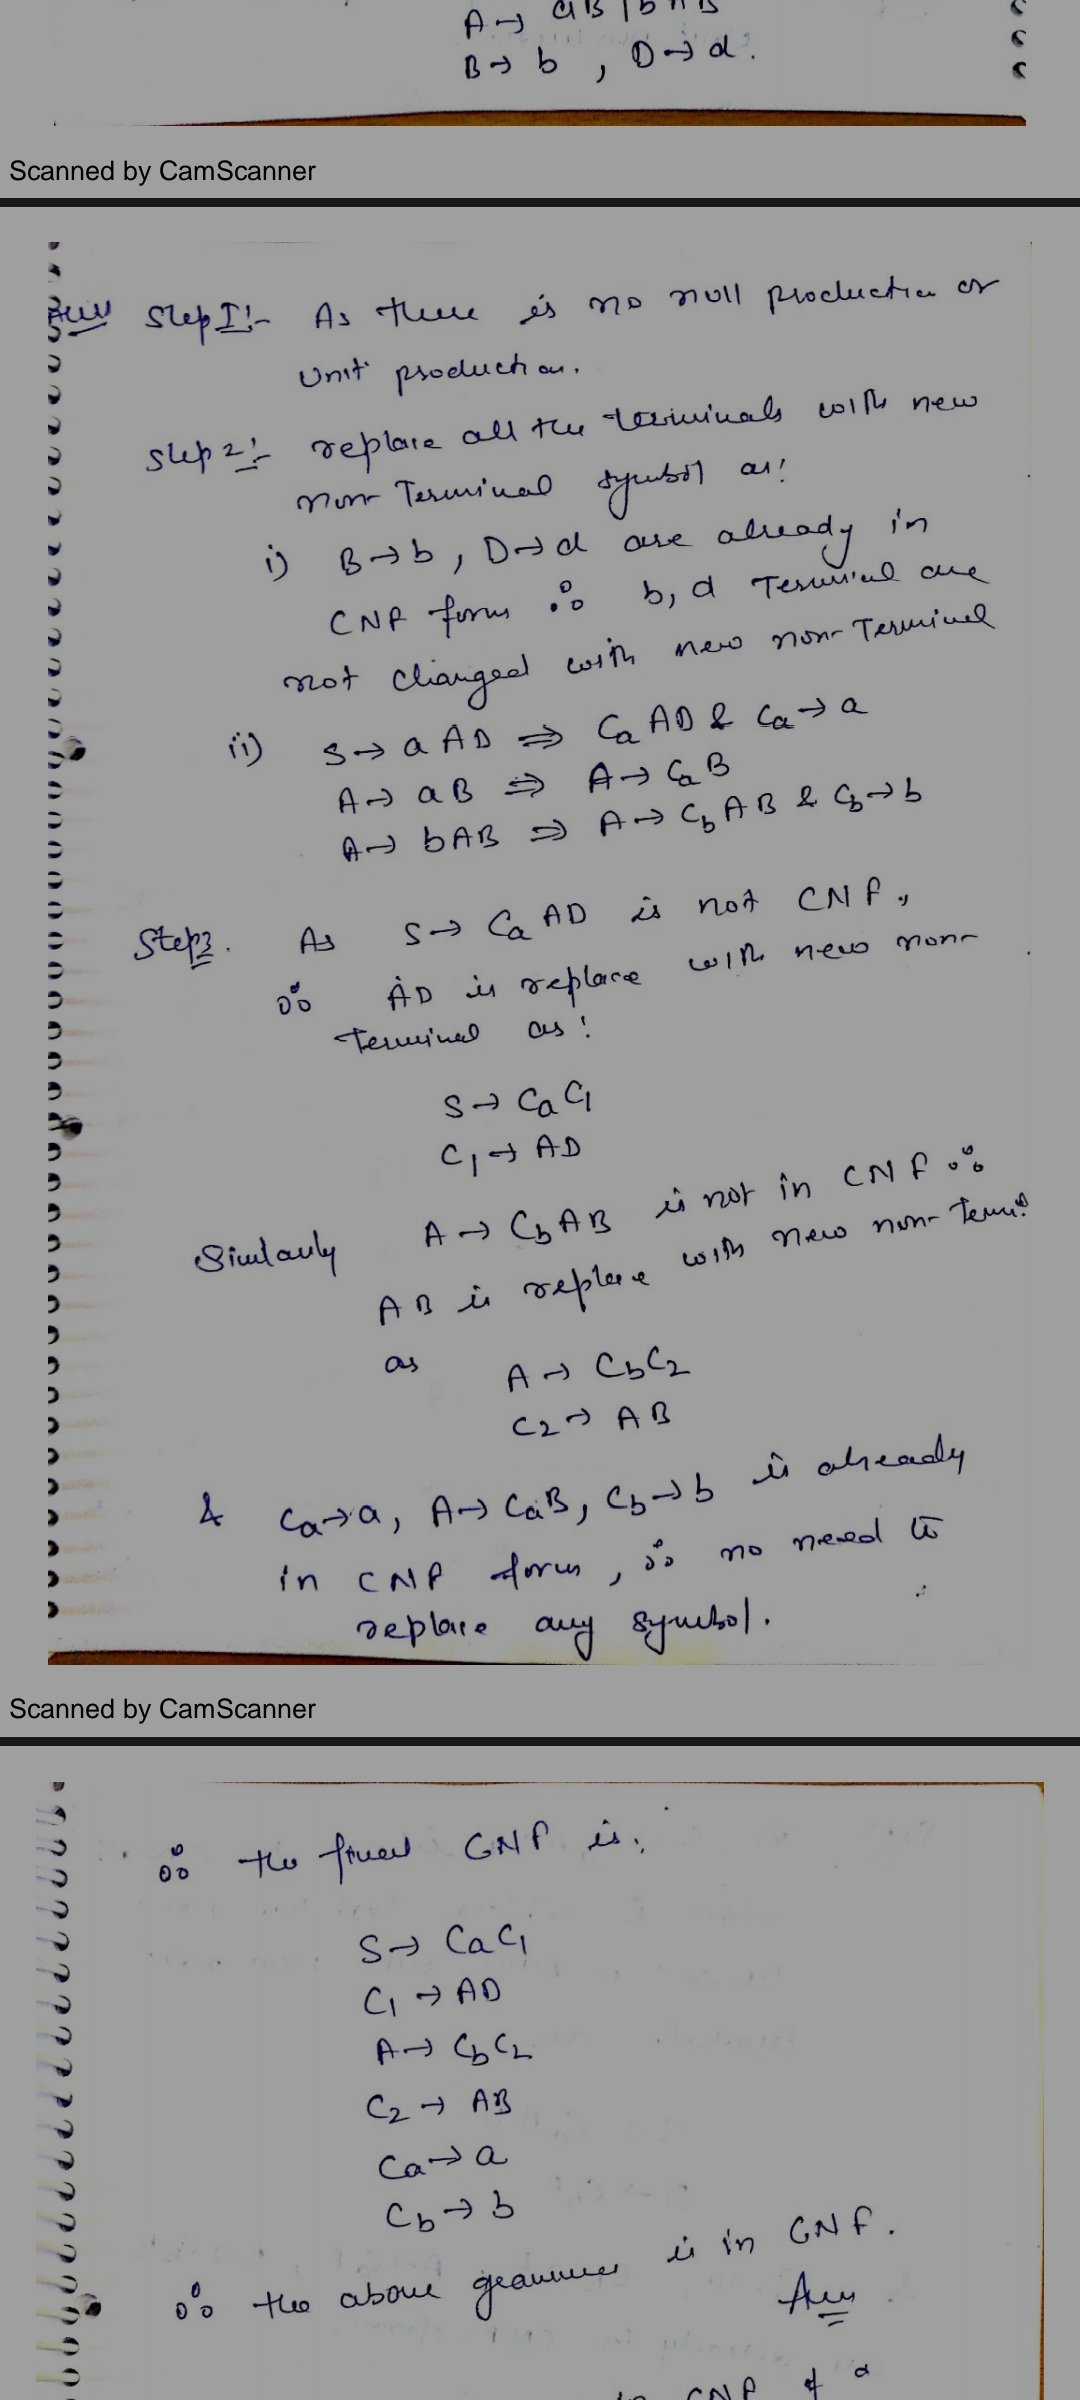 A → aB | bAB
B → b , D → d.
Scanned by CamScanner
Ans Step I:- As there is no null production or
unit production.
Step 2:- replace all the terminals with new
non-Terminal symbol as:
i) B→b, D→d are already in
CNF form ∴ b, d Terminal are
not changed with new non-Terminal
ii) S→ a AD ⇒ Ca AD & Ca→a
A→ aB ⇒ A→ CaB
A→ bAB ⇒ A→ CbAB & Cb→b
Step3. As S→ Ca AD is not CNF,
∴ AD is replace with new non-
Terminal as:
S→ CaC1
C1→ AD
Similarly A→ CbAB is not in CNF ∴
AB is replace with new non-Term:
as A→ CbC2
C2→ AB
& Ca→a, A→ CaB, Cb→b is already
in CNF form, ∴ no need to
replace any symbol.
Scanned by CamScanner
∴ the final CNF is:
S→ CaC1
C1 → AD
A→ CbC2
C2 → AB
Ca→a
Cb→b
∴ the above grammer is in CNF.
Ans
CNF of a